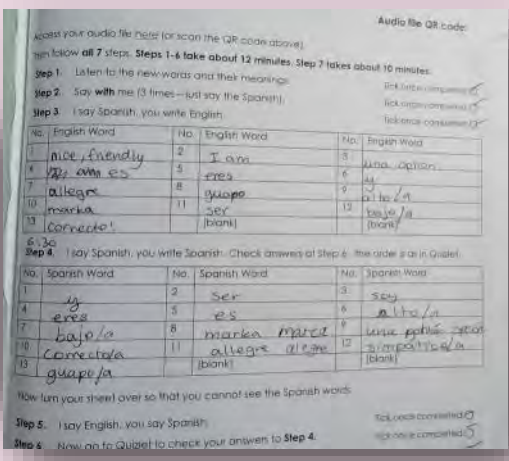 Audio file QR code:
Access your audio file here (or scan the QR code above).
Then follow all 7 steps. Steps 1-6 take about 12 minutes. Step 7 takes about 10 minutes.
Step 1. Listen to the new words and their meanings. Tick once completed
Step 2. Say with me (3 times—just say the Spanish). Tick once completed
Step 3. I say Spanish, you write English. Tick once completed
No. English Word No. English Word No. English Word
1 nice, friendly 2 I am 3 una option
4 am es 5 eres 6 y
7 allegre 8 guapo 9 alto/a
10 marka 11 ser 12 bajo/a
13 correcto! (blank) (blank)
6:30
Step 4. I say Spanish, you write Spanish. Check answers at Step 6: the order is as in Quizlet.
No. Spanish Word No. Spanish Word No. Spanish Word
1 y 2 ser 3 soy
4 eres 5 es 6 alto/a
7 bajo/a 8 marka marca 9
10 correcto/a 11 allegre alegre 12 simpatico/a
13 guapo/a (blank) (blank)
Now turn your sheet over so that you cannot see the Spanish words.
Step 5. I say English, you say Spanish. Tick once completed
Step 6. Now go to Quizlet to check your answers to Step 4. Tick once completed